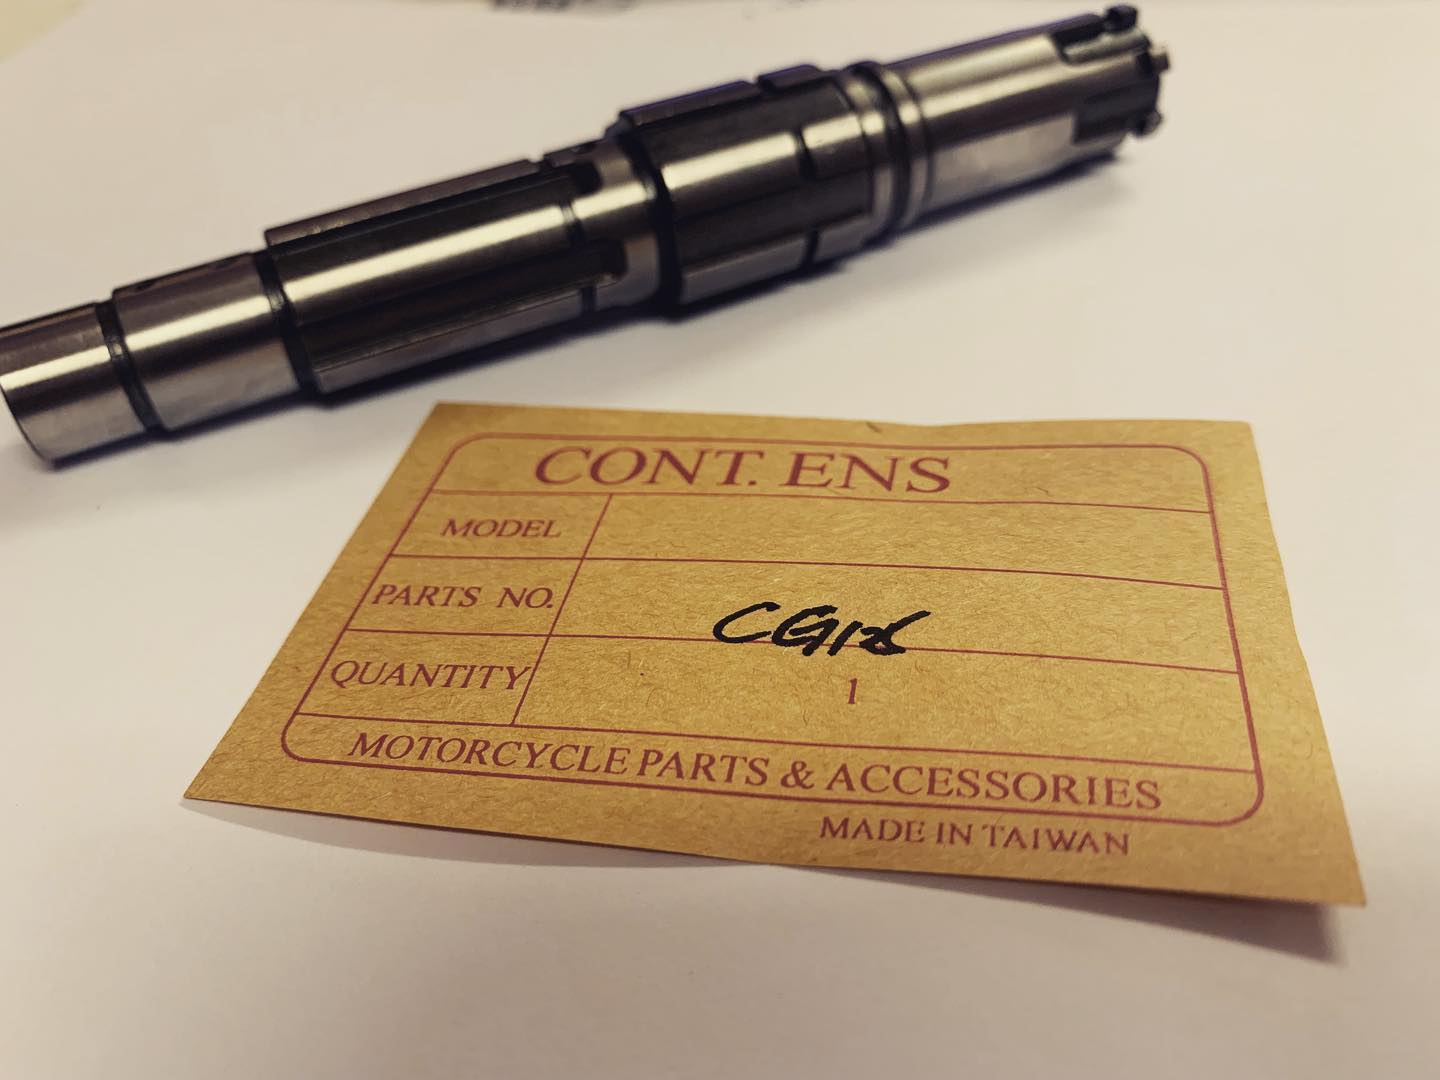 CONT. ENS
MODEL
PARTS NO.
CG125
QUANTITY 1
MOTORCYCLE PARTS & ACCESSORIES
MADE IN TAIWAN